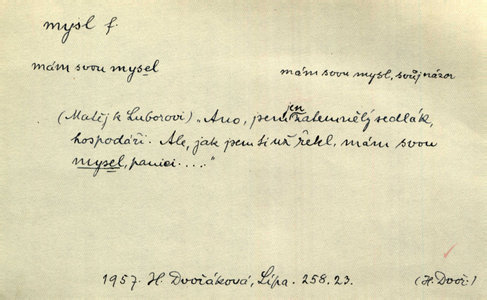 mysl f.
mám svou mysel mám svou mysl, svůj názor
(Matěj k Luborovi) „Ano, jsem jen zatemnělý sedlák,
hospodáři. Ale, jak jsem si už řekl, mám svou
mysel, panici....."
1957. H. Dvořáková, Lípa. 258.23. (H. Dvoř.)